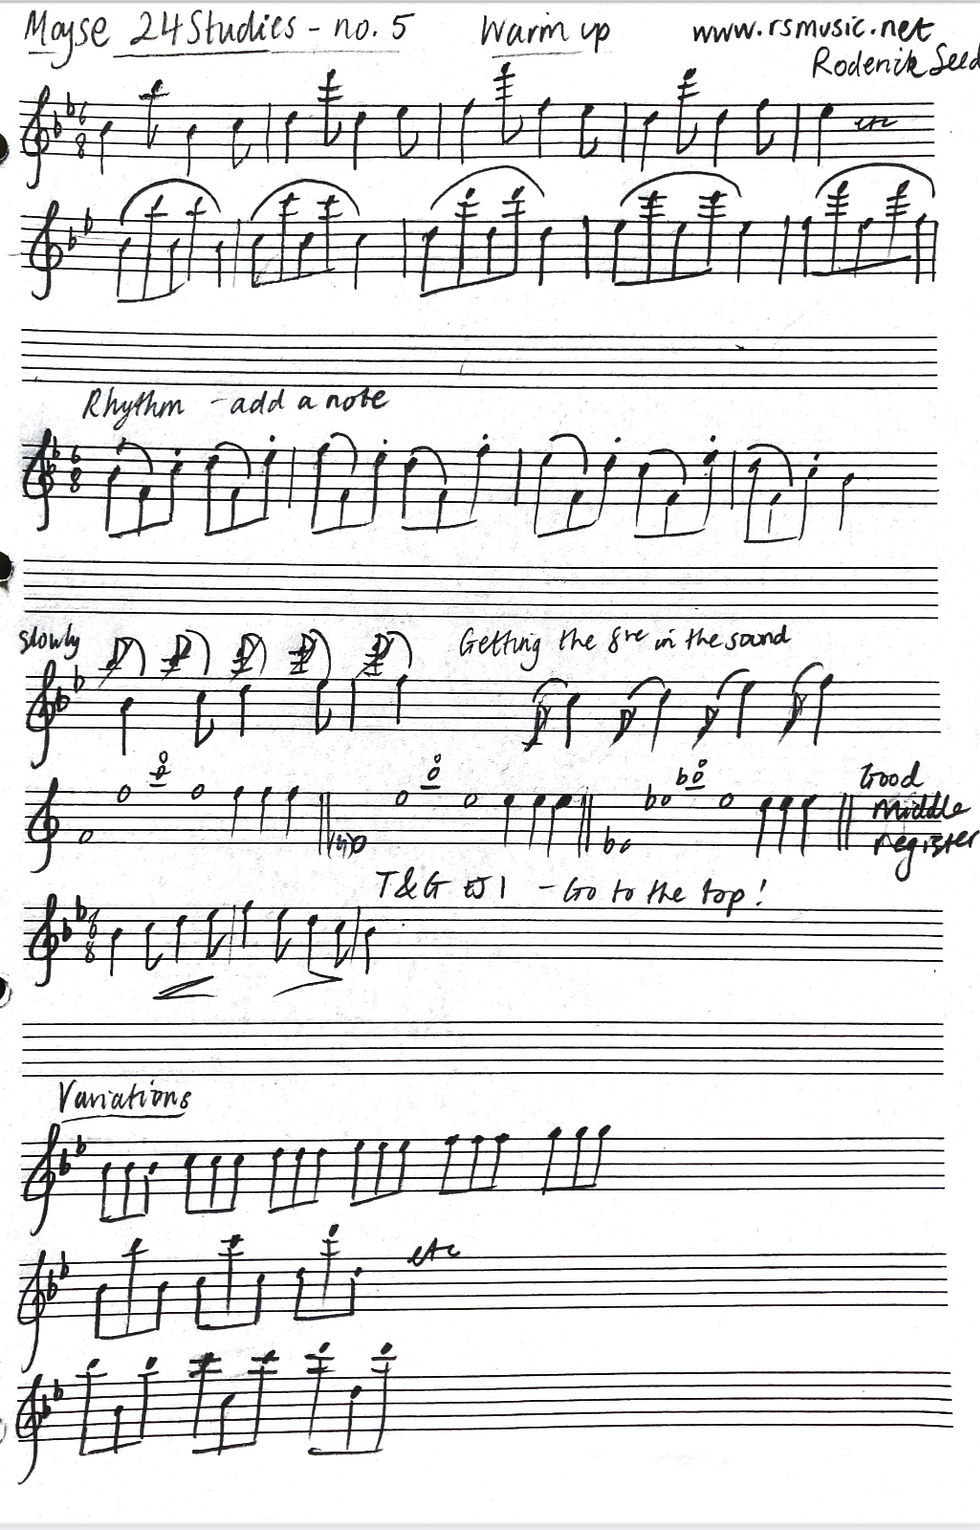 Moyse 24 Studies - no. 5 Warm up www.rsmusic.net
Roderick Seed
6
8
etc
Rhythm - add a note
6
8
slowly Getting the 8ve in the sound
Good
Middle
register
T&G EJ1 - Go to the top!
6
8
Variations
etc